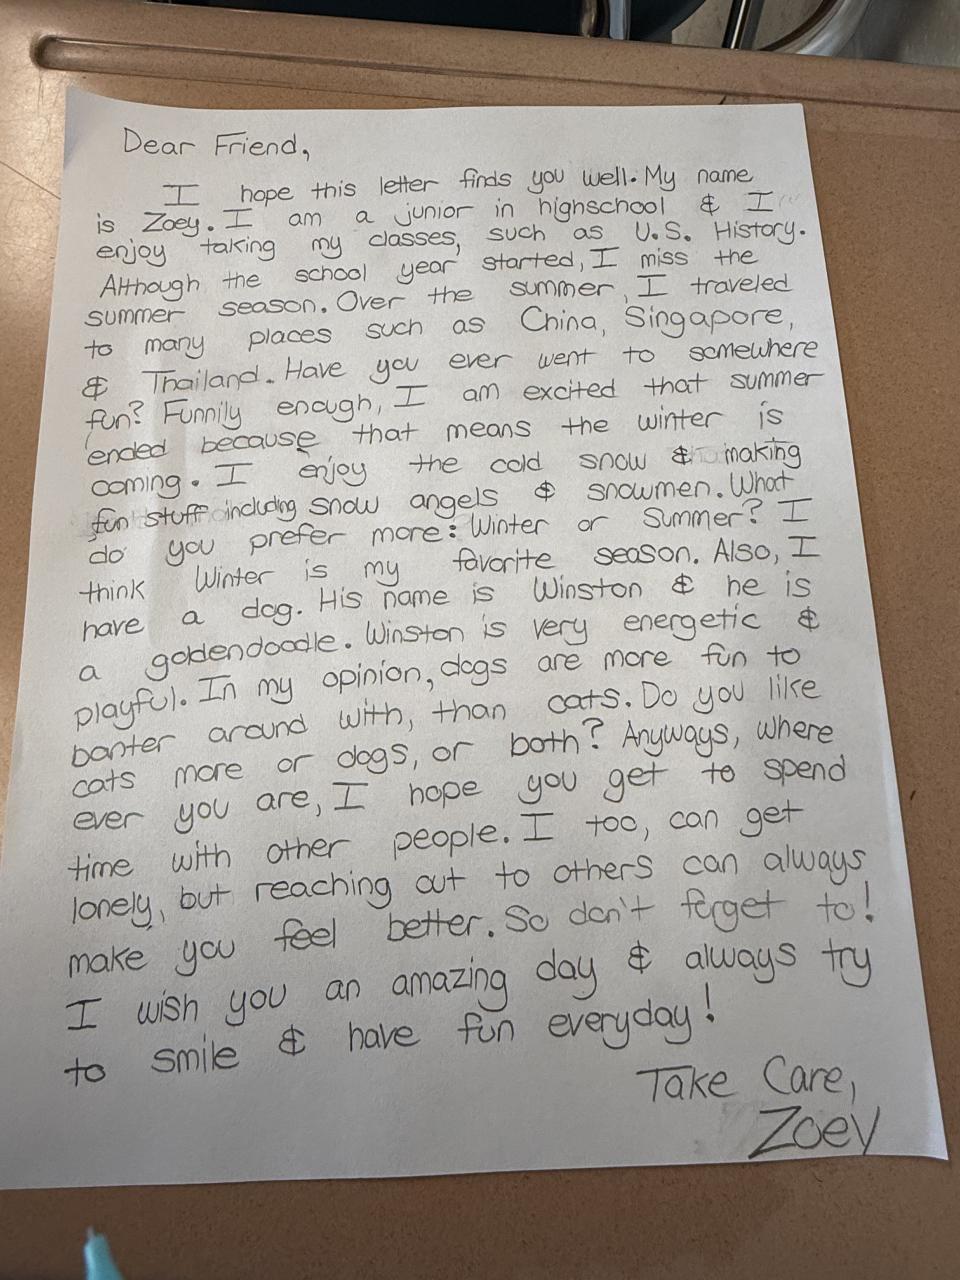 Dear Friend,
I hope this letter finds you well. My name
is Zoey. I am a junior in highschool & I
enjoy taking my classes, such as U.S. History.
Although the school year started, I miss the
summer season. Over the summer, I traveled
to many places such as China, Singapore,
& Thailand. Have you ever went to somewhere
fun? Funnily enough, I am excited that summer
ended because that means the winter is
coming. I enjoy the cold snow & making
fun stuff including snow angels & snowmen. What
do you prefer more: Winter or Summer? I
think Winter is my favorite season. Also, I
have a dog. His name is Winston & he is
a goldendoodle. Winston is very energetic &
playful. In my opinion, dogs are more fun to
banter around with, than cats. Do you like
cats more or dogs, or both? Anyways, where
ever you are, I hope you get to spend
time with other people. I too, can get
lonely, but reaching out to others can always
make you feel better. So don't forget to!
I wish you an amazing day & always try
to smile & have fun everyday!
Take Care,
Zoey